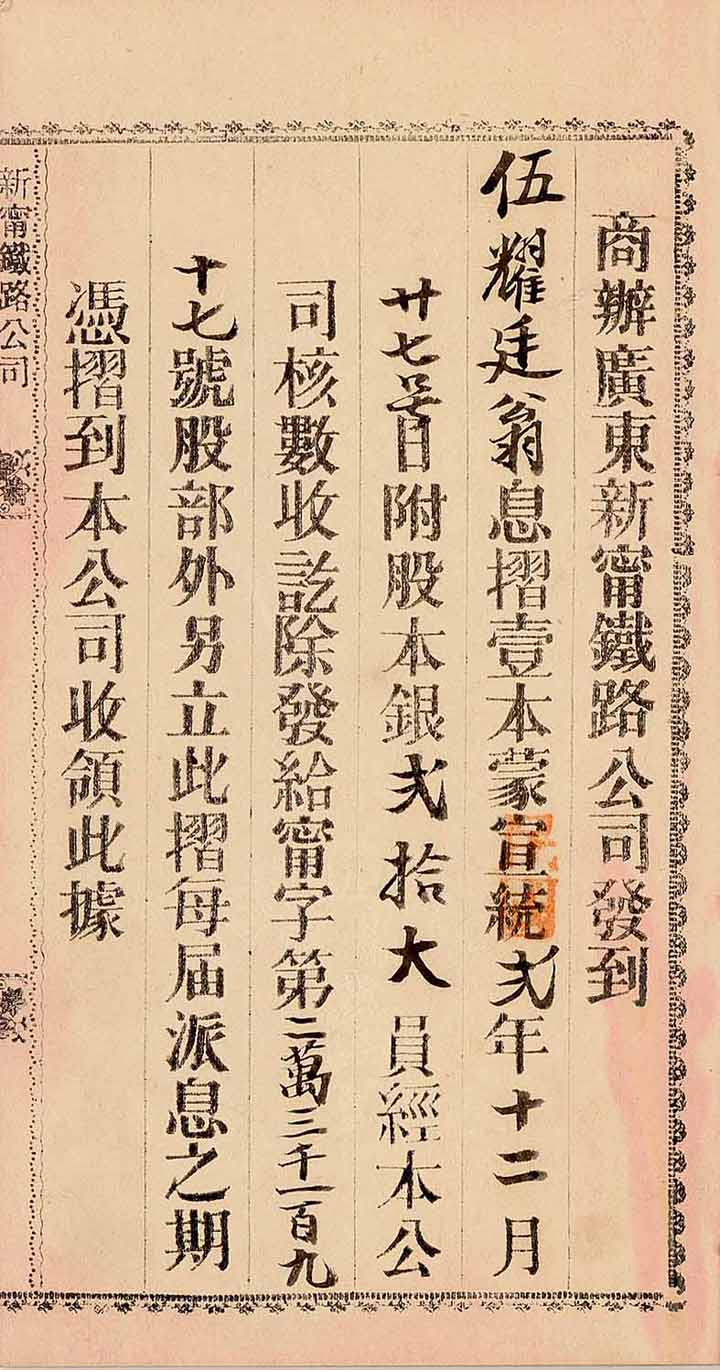 商辦廣東新甯鐵路公司發到
伍耀廷翁息摺壹本蒙宣統弍年十二月
廿七日附股本銀弍拾大員經本公
司核數收訖除發給甯字第二萬三千一百九
十七號股部外另立此摺每届派息之期
憑摺到本公司收領此據
新甯鐵路公司